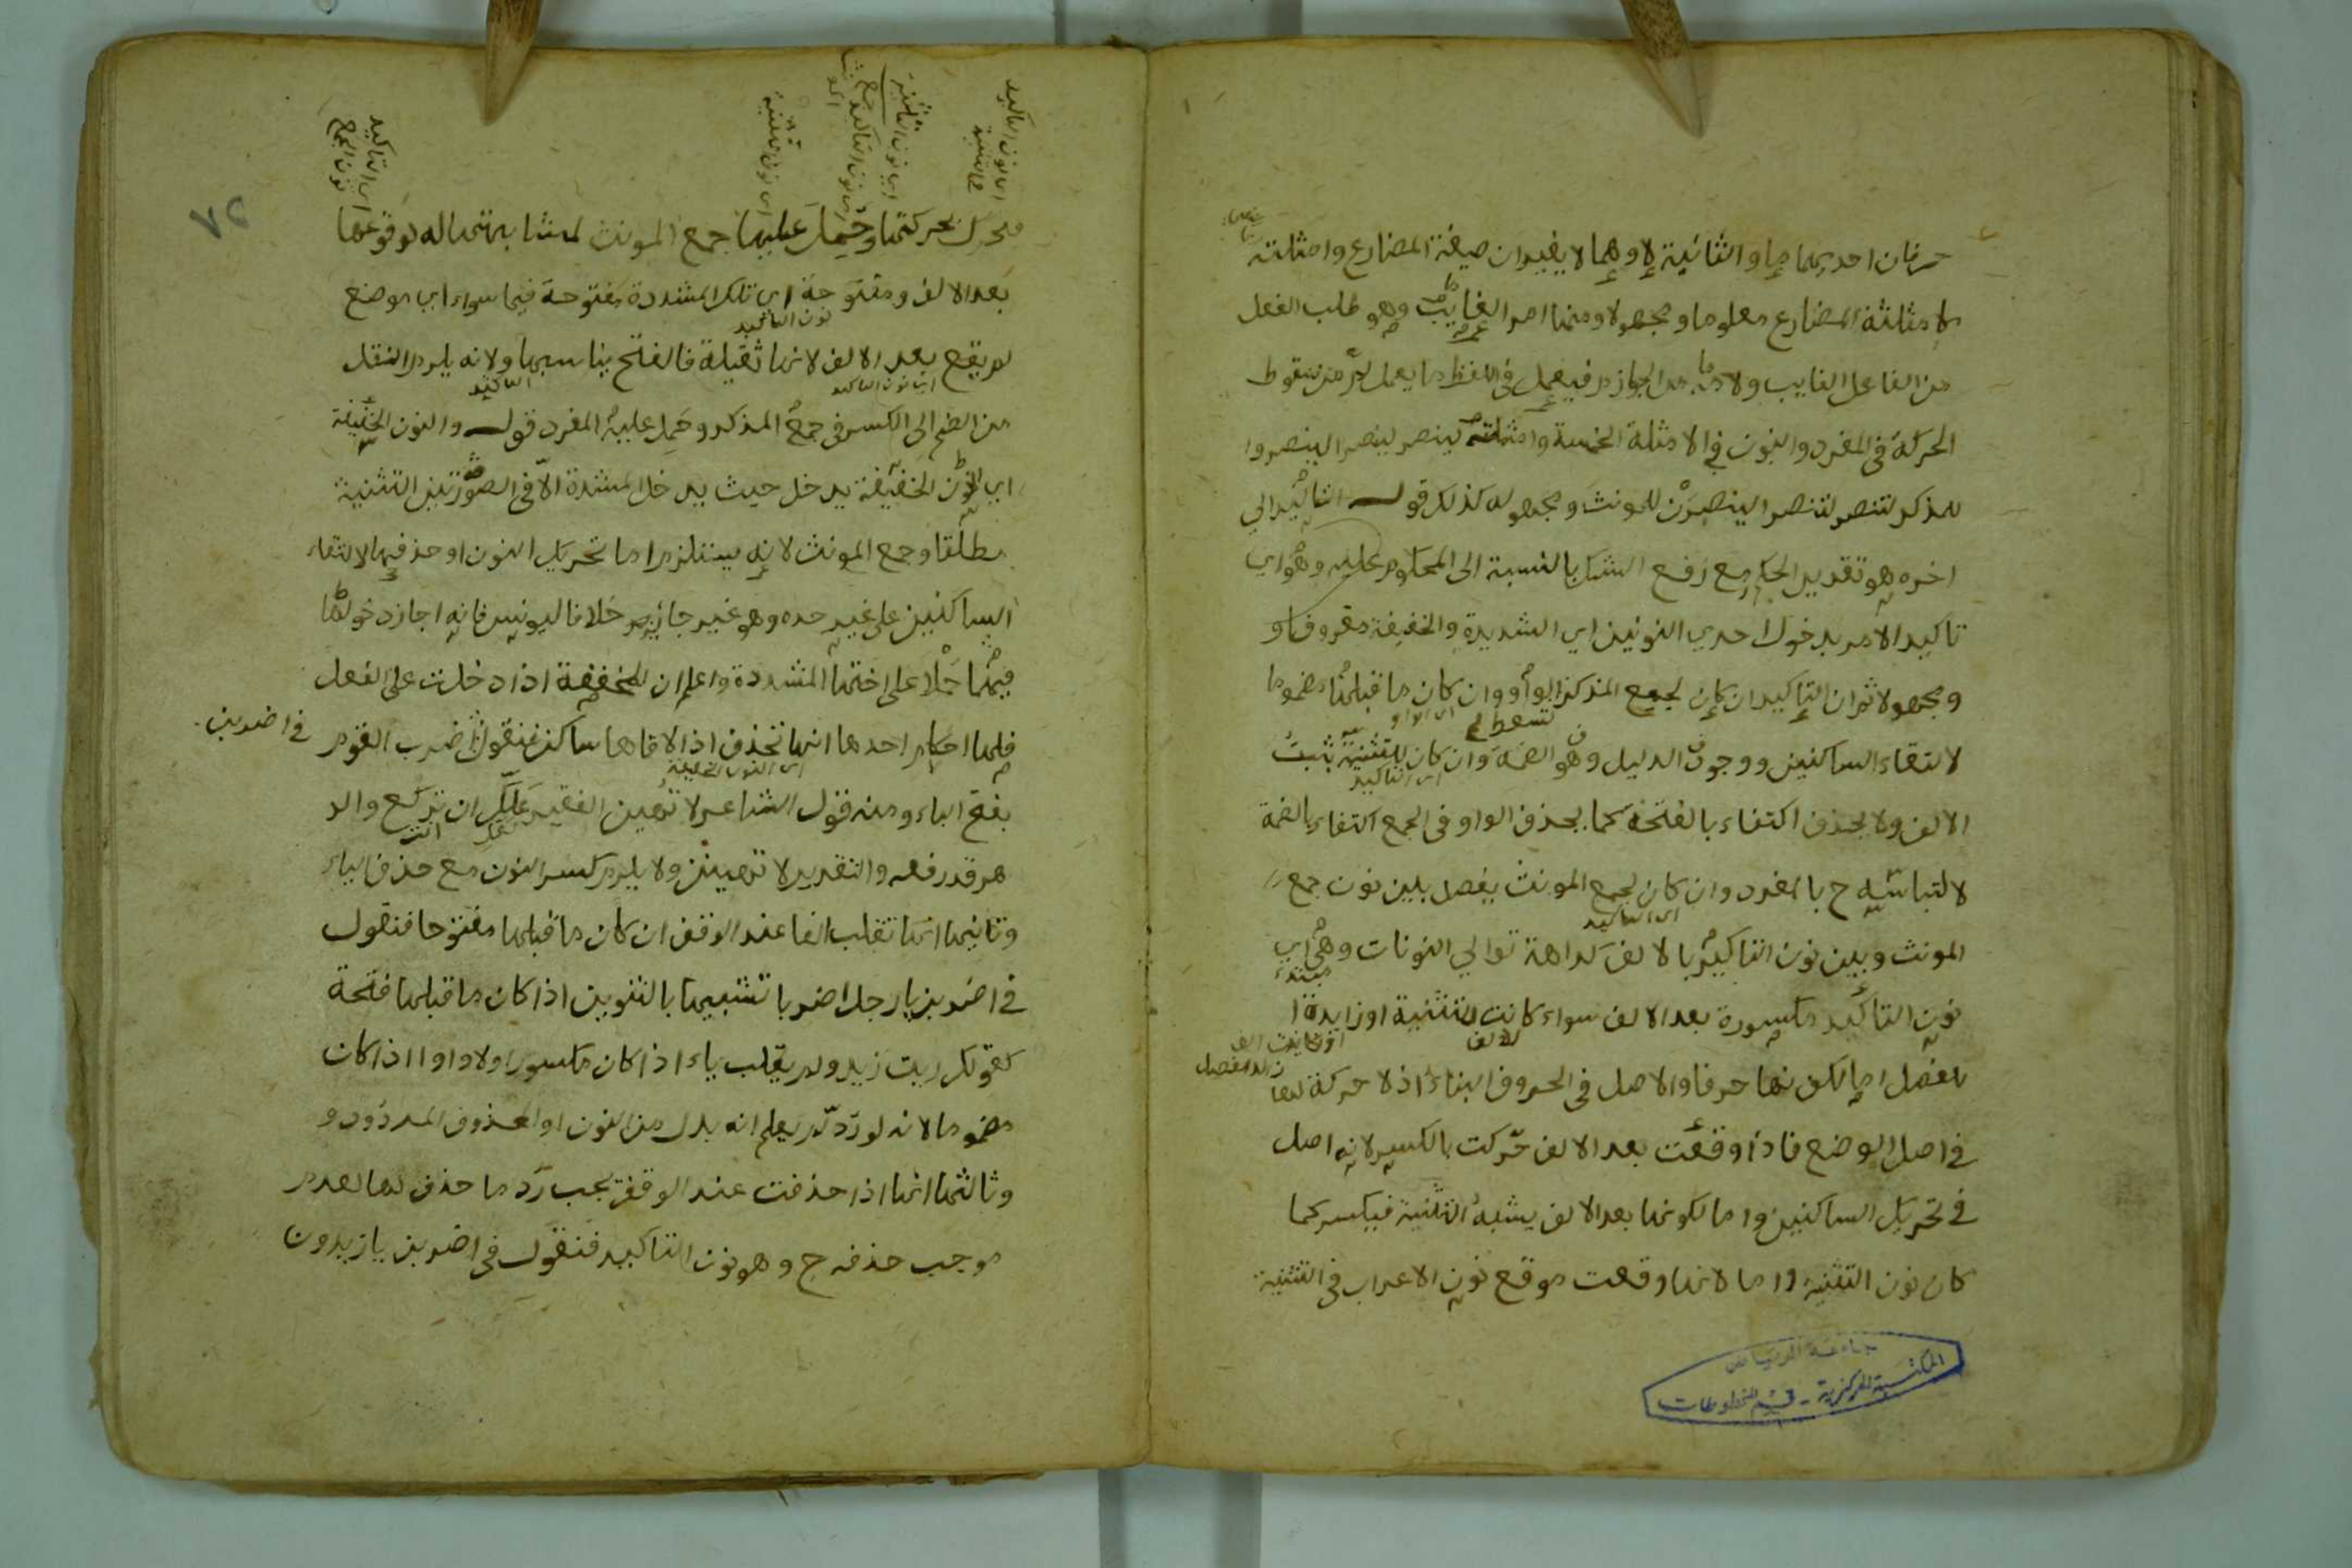 حرفان احديهما ما والثانية لا وهما لا يغيران صيغة المضارع وامثلته
كامثلة المضارع معلوما ومجهولا ومنها امر الغايب وهو طلب الفعل
من الفاعل الغايب ولامه من الجوازم فيعمل في اللفظ ما يعمل لم من سقوط
الحركة في المفرد والنون في الامثلة الخمسة وامثلته لينصر لينصرا لينصروا
للمذكر لتنصر لتنصرا لينصرن للمونث ومجهوله كذلك قوله التاكيد الي
اخره هو تقدير الحكم مع رفع الشك بالنسبة الى المحكوم عليه وهو اي
تاكيد الامر بدخول احدي النونين اي الشديدة والخفيفة معروفا و
ومجهولا ثم ان التاكيد ان كان لجمع المذكر بالواو وان كان ما قبلها مضموما
تسقط اي الواو
لالتقاء الساكنين ووجود الدليل وهو الضمة وان كان للتثنية يثبت
اي التاكيد
الالف ولا يحذف اكتفاء بالفتحة كما يحذف الواو في الجمع اكتفاء بالضمة
لالتباسه ح بالمفرد وان كان لجمع المونث يفصل بين نون جمع
اي التاكيد
المونث وبين نون التاكيد بالالف كراهة توالي النونات وهي اي
مبتدء
نون التاكيد مكسورة بعد الالف سواء كانت للتثنية او زايدة
للفصل اما لكونها حرفا والاصل في الحروف البناء اذ لا حركة لها
في اصل الوضع فاذا وقعت بعد الالف حركت بالكسر لانه اصل
في تحريك الساكنين واما لكونها بعد الالف يشبه التثنية فيكسر كما
كان نون التثنية واما لانها وقعت موقع نون الاعراب في التثنية
جامعة الرياض
المكتبة المركزية - قسم المخطوطات
اي نون التاكيد
في التثنية
اي نون التثنية
اي نون التاكيد جمع
اي نون تثنية
اي التاكيد
نون الجمع
٧٢
فحرك بحركتها وحمل عليها جمع المونث لمشابهتها له لوقوعها
بعد الالف ومفتوحة اي تلك المشددة مفتوحة فيما سواه اي موضع
نون التاكيد
لم يقع بعد الالف لانها ثقيلة فالفتح يناسبها ولانه يلزم النقل
اي نون التاكيد
التاكيد
من الضم الى الكسر في جمع المذكر وحمل عليه المفرد قوله والنون الخفيفة
اي النون الخفيفة يدخل حيث يدخل المشددة الا في الصورتين التثنية
مطلقا وجمع المونث لانه يستلزم اما تحريك النون او حذفها لالتقاء
الساكنين على غير حده وهو غير جايز خلافا ليونس فانه اجاز دخولها
فيهما حملا على اختها المشددة واعلم ان للمخففة اذا دخلت على الفعل
فلها احكام احدها انها تحذف اذا لاقاها ساكن فتقول اضرب القوم في اضربن
اي النون الخفيفة
بفتح الباء ومنه قول الشاعر لا تهين الفقير علك ان تركع والد
لعل
انت
هر قد رفعه والتقدير لا تهينن ولا يلزم كسر النون مع حذف الياء
وثانيها انها تقلب الفا عند الوقف ان كان ما قبلها مفتوحا فتقول
في اضربن يا رجل اضربا تشبيها بالتنوين اذا كان ما قبلها فتحة
كقولك رايت زيدا ولم يقلب ياء اذا كان مكسورا ولا واوا اذا كان
مضموما لانه لو رد لم يعلم انه بدل من النون او المحذوف المردود و
وثالثها انها اذا حذفت عند الوقف يجب رد ما حذف لها لعدم
موجب حذفه ح وهو نون التاكيد فتقول في اضربن يا زيدون